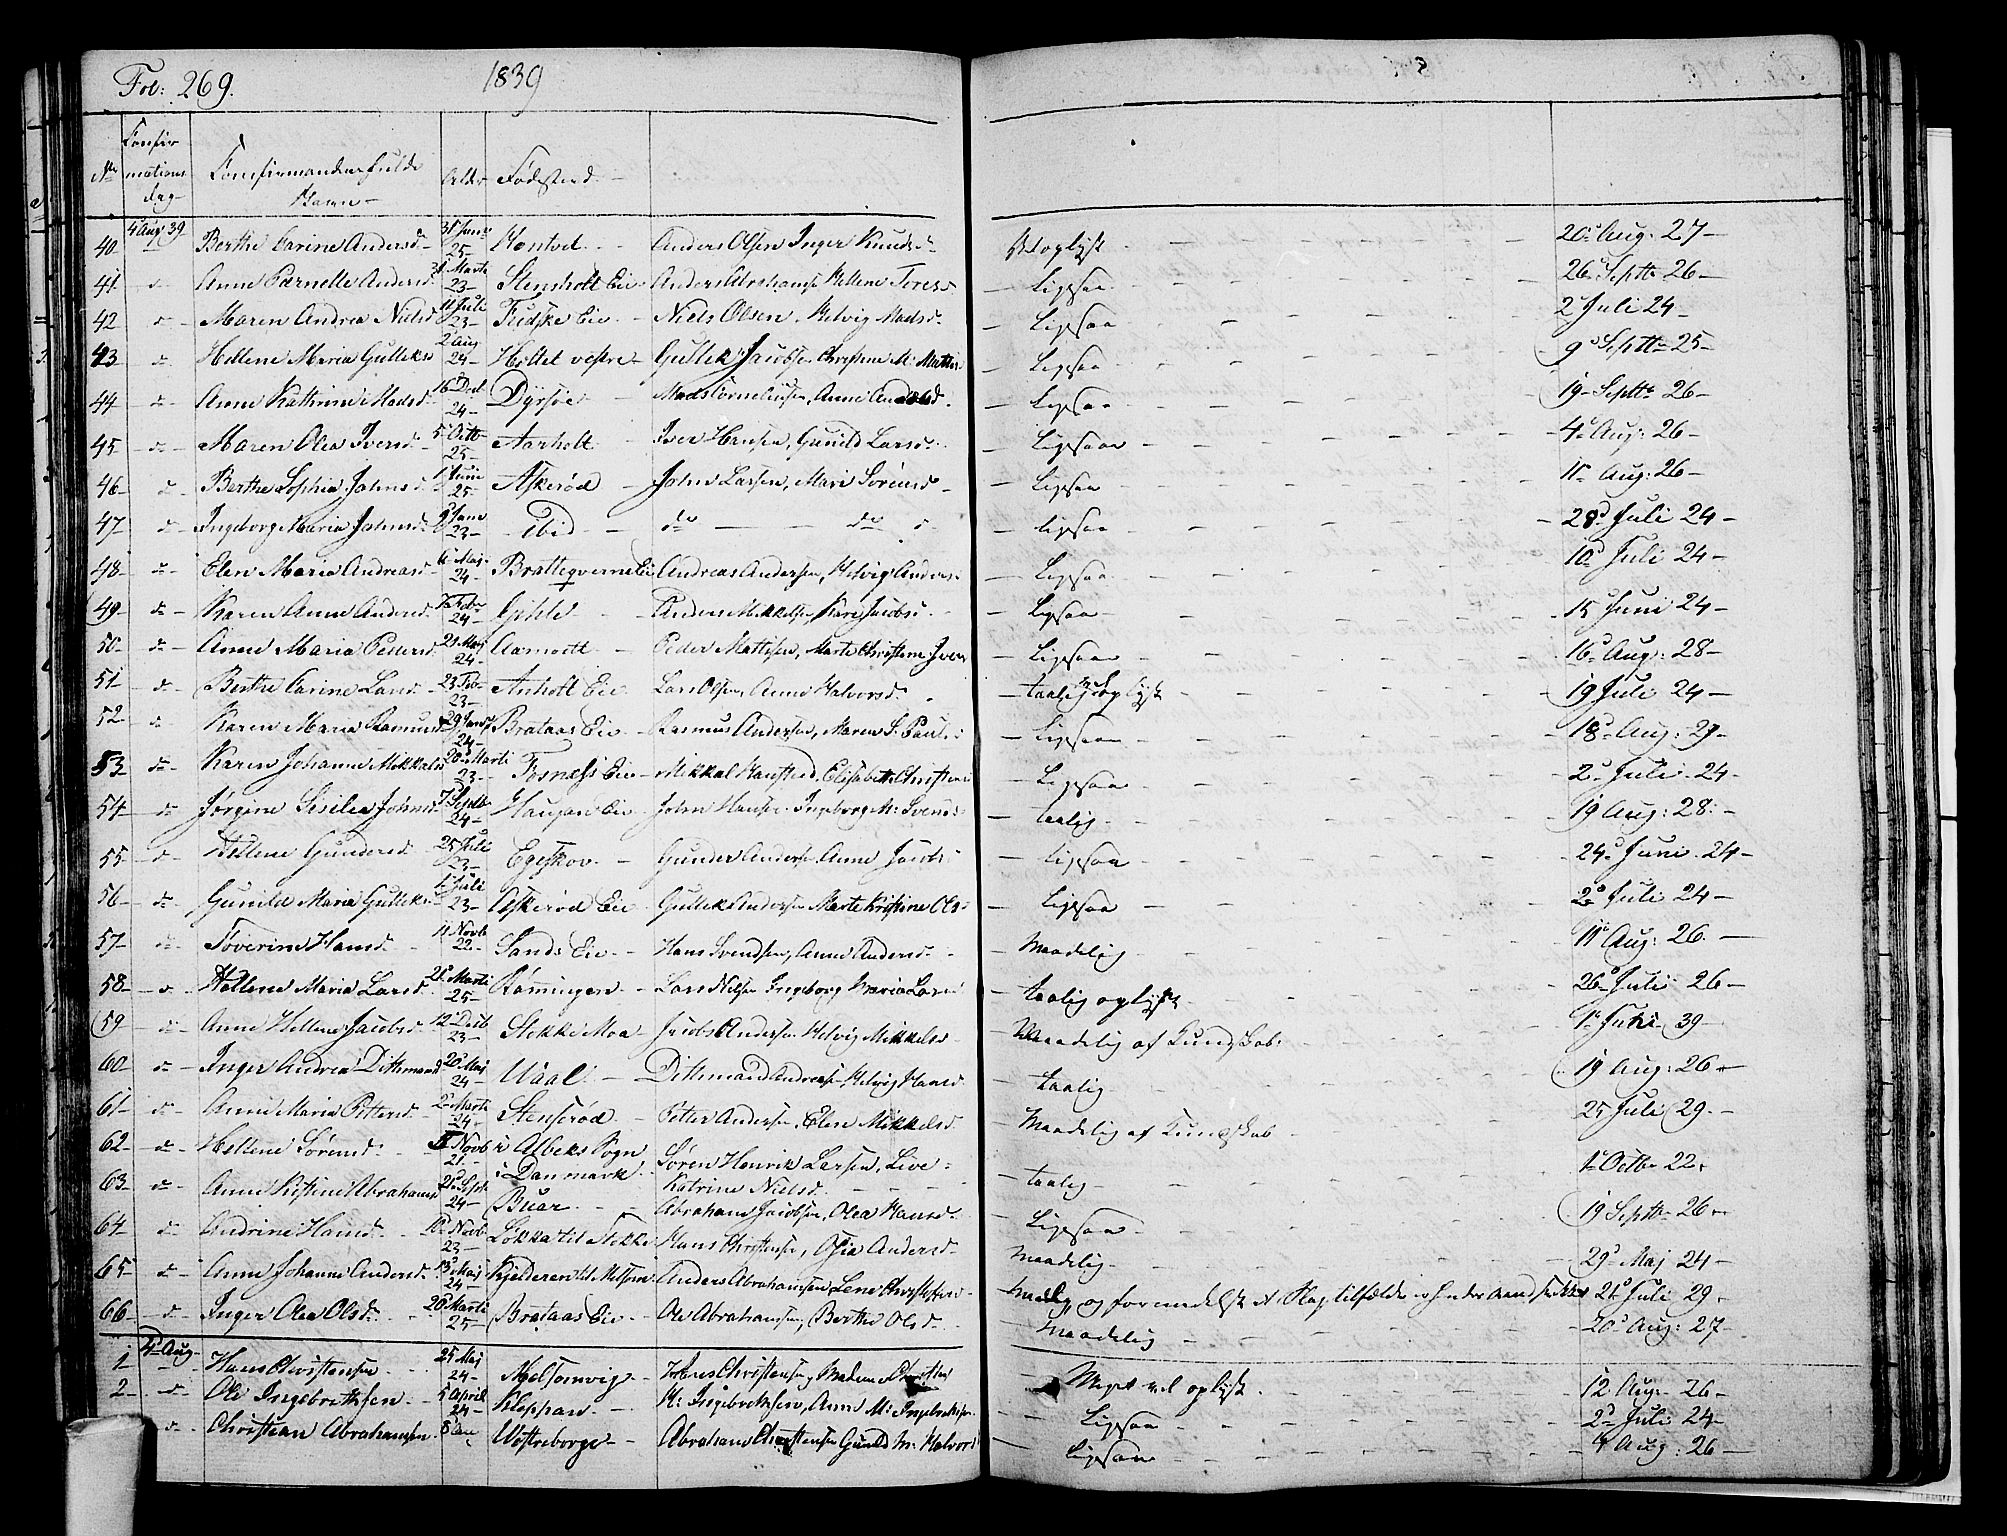 Fol: 269. 1839
No Confirmations Dag Confirmandens fulde Navn Alder Fødested
40 4 Aug 39 Berthe Carine Andersd 31 Janu 25 Hontvet Anders Olsen Inger Knudsd Veloplyst 20 Aug: 27
41 do Anne Pernelle Andersd 31 Marts 23 Stensholt Eie Anders Abrahamse Hellene Toresd Ligesaa 26 Septbr 26
42 do Maren Andrea Nielsd 11 Juli 23 Fudske Eie Niels Olsen, Helvig Madsd. Ligesaa 2 Juli 24
43 do Hellene Maria Gulleksd 2 Aug 24 Holtet vestre Gullek Jacobsen Christine M: Mattisd Ligesaa 9 Septbr 25
44 do Anne Kathrine Madsd 16 Decb 24 Dyrsøe Mads Corneliusen, Anne Andersd. Ligesaa 19 Septbr 26
45 do Maren Olea Iversd 5 Octb 25 Aarholt Iver Hansen, Gunild Larsd. Ligesaa 4 Aug: 26
46 do Berthe Sophia Johnsd 1 Juni 25 Askerød John Larsen, Mari Sørensd Ligesaa 11 Aug: 26
47 do Ingeborg Maria Johnsd 9 Janu 23 Ibid do do Ligesaa 28 Juli 24
48 do Elen Maria Andreasd 6 Maj 24 Bratteqverne Eie Andreas Andersen, Helvig Andersd Ligesaa 10 Juli 24
49 do Karen Anne Andersd Febr 24 Gihle Anders Mikkelsen Kari Jacobsd Ligesaa 15 Juni 24
50 do Anne Maria Pedersd 21 Maj 24 Aamodt Peder Mattisen, Marte Christine Iversd Ligesaa 16 Aug: 28
51 do Berthe Carine Larsd 23 Feb 23 Anholt Eie Lars Olsen, Anne Halvorsd. taalig vel oplyst 19 Juli 24
52 do Karen Maria Rasmusd 29 Janu 24 Brataas Eie Rasmus Andersen, Maren S. Paulsd Ligesaa 18 Aug: 27
53 do Karen Johanne Mikkelsd 20 Marti 23 Fosness Eie Mikkel Hansted, Elisabeth Christensd Ligesaa 2 Juli 24
54 do Jørgine Sisilia Johnsd 7 Septb 24 Haugan Eie John Hansen Ingeborg M: Svensd taalig 19 Aug: 28
55 do Hellene Gundersd 25 Juli 23 Egeskov Gunder Andersen Anne Jacobsd Ligesaa 24 Juni 24
56 do Gunild Maria Gulleksd 1 Juli 23 Askerød Eie Gullek Andersen Marte Kristine Olsd Ligesaa 2 Juli 24
57 do Toverine Hansd 11 Novb 22 Sands Eie Hans Svendsen, Anne Andersd. Maadelig 11 Aug: 26
58 do Hellene Maria Larsd 21 Marti 25 Rømmingen Lars Nilsen Ingeborg Maria Larsd taalig oplyst 26 Juli 26
59 do Anne Hellene Jacobsd 12 Decb 23 Stokke Moa Jacob Andersen Helvig Mikkelsd Maadelig af Kundskab 1 Juni 39
60 do Inger Andrea Dithmand 20 Maj 24 Uaal Dithmand Andreasen, Helvig Hansd. taalig 19 Aug: 26
61 do Anne Maria Pettersd 2 Marti 24 Stenserød Peter Andersen, Elen Mikkelsd. Maadelig af Kundskab 25 Juli 29
62 do Hellene Sørensd. Novb 21 i Albeks Sogn i Danmark Søren Henrik Larsen, Live Katrine Nielsd. taalig 1 Octbr 22
63 do Anne Kristine Abrahamsd 21 Sept 24 Buar Abraham Jacobsen, Olea Hansd. Ligesaa 19 Septbr 26
64 do Andrine Hansd 10 Novb 23 Løkka til Stokke Hans Christensen, Osia Andersd. maadelig 29 Maj 24
65 do Anne Johanne Andersd. 13 Maj 24 Kjelderen til Melsom Anders Abrahamsen, Lene Christofersd. og formedelst 21 Juli 29
66 do Inger Olea Olsd: 20 Marti 25 Brataas Eie Ole Abrahamsen, Berthe Olsd. maadelig 20 Aug: 27
1 4 Aug Hans Christensen 25 Maj 24 Melsomvig Christensen, Meget vel oplyst. 12 Aug: 26
2 do Ole Ingebrethsen 5 April 24 Kloppan H: Ingebrethsen, Anne M: Ingebrethsen Ligesaa 2 Juli 24
do Christian Abrahamsen 8 Jan Wøstreborge Abraham Christensen Gunild M: Halvorsd Ligesaa 4 Aug: 26